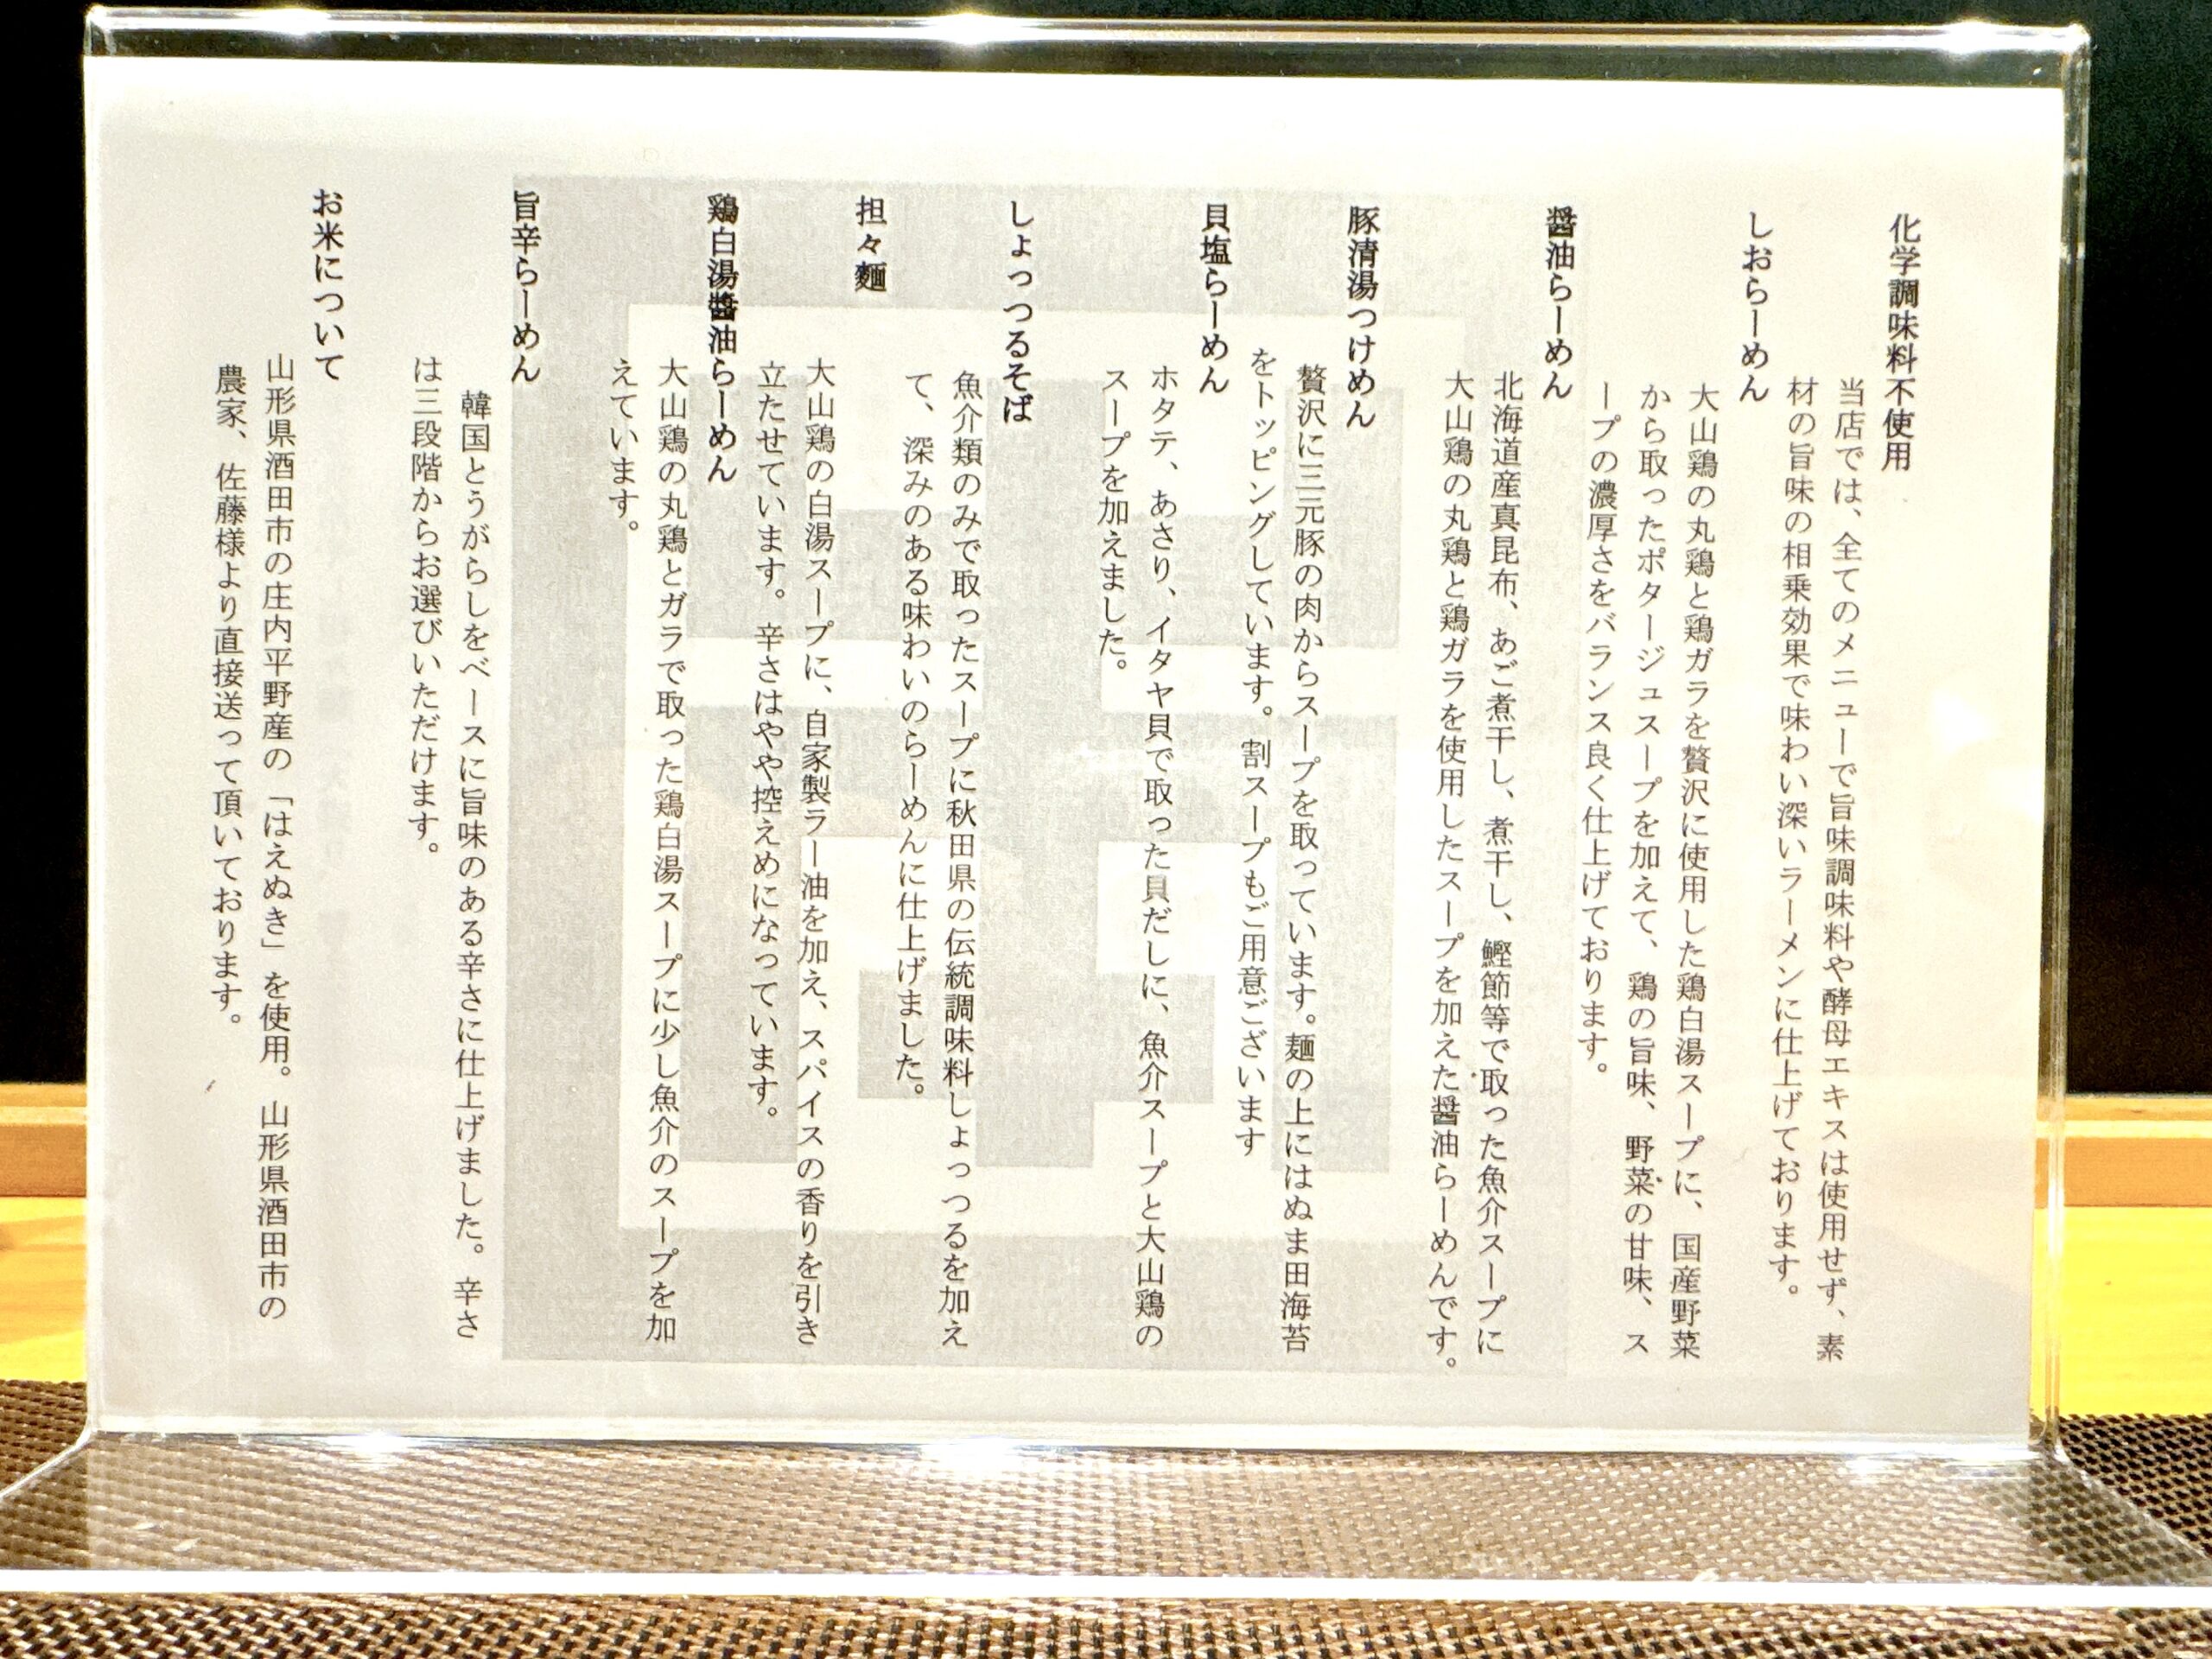 化学調味料不使用
当店では、全てのメニューで旨味調味料や酵母エキスは使用せず、素
材の旨味の相乗効果で味わい深いラーメンに仕上げております。
しおらーめん
大山鶏の丸鶏と鶏ガラを贅沢に使用した鶏白湯スープに、国産野菜
から取ったポタージュスープを加えて、鶏の旨味、野菜の甘味、ス
ープの濃厚さをバランス良く仕上げております。
醤油らーめん
北海道産真昆布、あご煮干し、煮干し、鰹節等で取った魚介スープに
大山鶏の丸鶏と鶏ガラを使用したスープを加えた醤油らーめんです。
豚清湯つけめん
贅沢に三元豚の肉からスープを取っています。麺の上にはぬま田海苔
をトッピングしています。割スープもご用意ございます
貝塩らーめん
ホタテ、あさり、イタヤ貝で取った貝だしに、魚介スープと大山鶏の
スープを加えました。
しょっつるそば
魚介類のみで取ったスープに秋田県の伝統調味料しょっつるを加え
て、深みのある味わいのらーめんに仕上げました。
担々麺
大山鶏の白湯スープに、自家製ラー油を加え、スパイスの香りを引き
立たせています。辛さはやや控えめになっています。
鶏白湯醬油らーめん
大山鶏の丸鶏とガラで取った鶏白湯スープに少し魚介のスープを加
えています。
旨辛らーめん
韓国とうがらしをベースに旨味のある辛さに仕上げました。辛さ
は三段階からお選びいただけます。
お米について
山形県酒田市の庄内平野産の「はえぬき」を使用。山形県酒田市の
農家、佐藤様より直接送って頂いております。